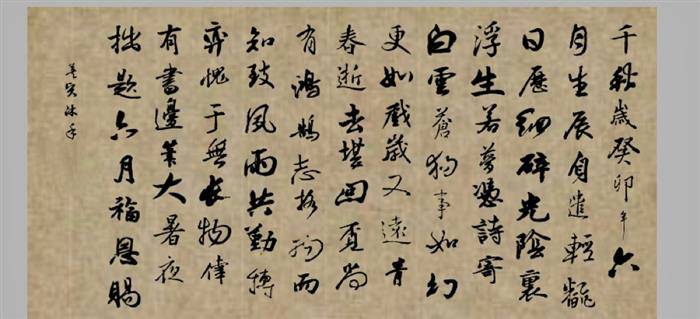 千秋歲癸卯年六
月生辰自遣輕飜
日歷細碎光陰裏
浮生若夢憑詩寄
白雲蒼狗事如幻
更如戲歲又遠青
春逝去堪回尚
有鴻鵠志格物而
知致風雨共勤
弈愧于無長物倖
有書邊筆大暑夜
拙題六月福恩賜
沐手